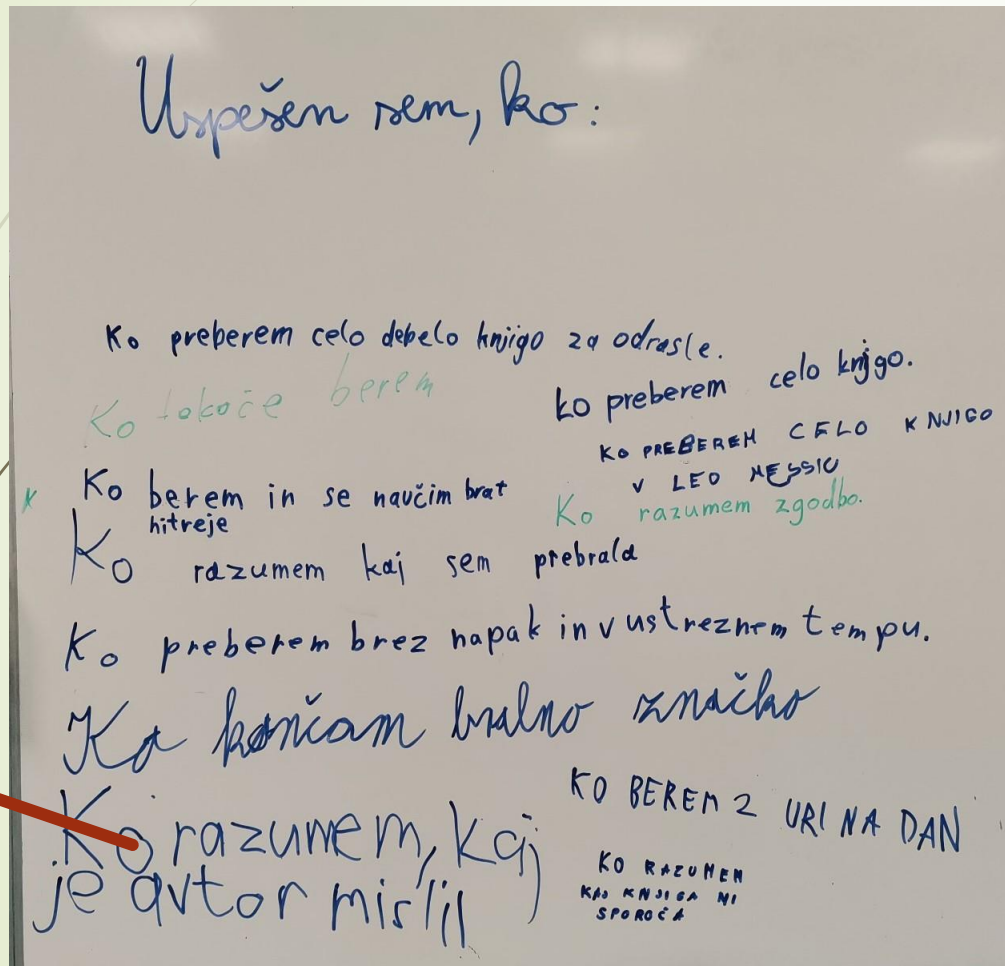 Uspešen sem, ko:
Ko preberem celo debelo knjigo za odrasle.
Ko tekoče berem
ko preberem celo knjgo.
KO PREBEREM CELO KNJIGO
V LEO MESSIU
Ko berem in se naučim brat
hitreje
Ko razumem zgodbo.
Ko razumem kaj sem prebrala
Ko preberem brez napak in v ustreznem tempu.
Ko končam bralno značko
Ko razumem, kaj
je avtor mislil
KO BEREM 2 URI NA DAN
KO RAZUMEM
KAJ KNJIGA MI
SPOROČA